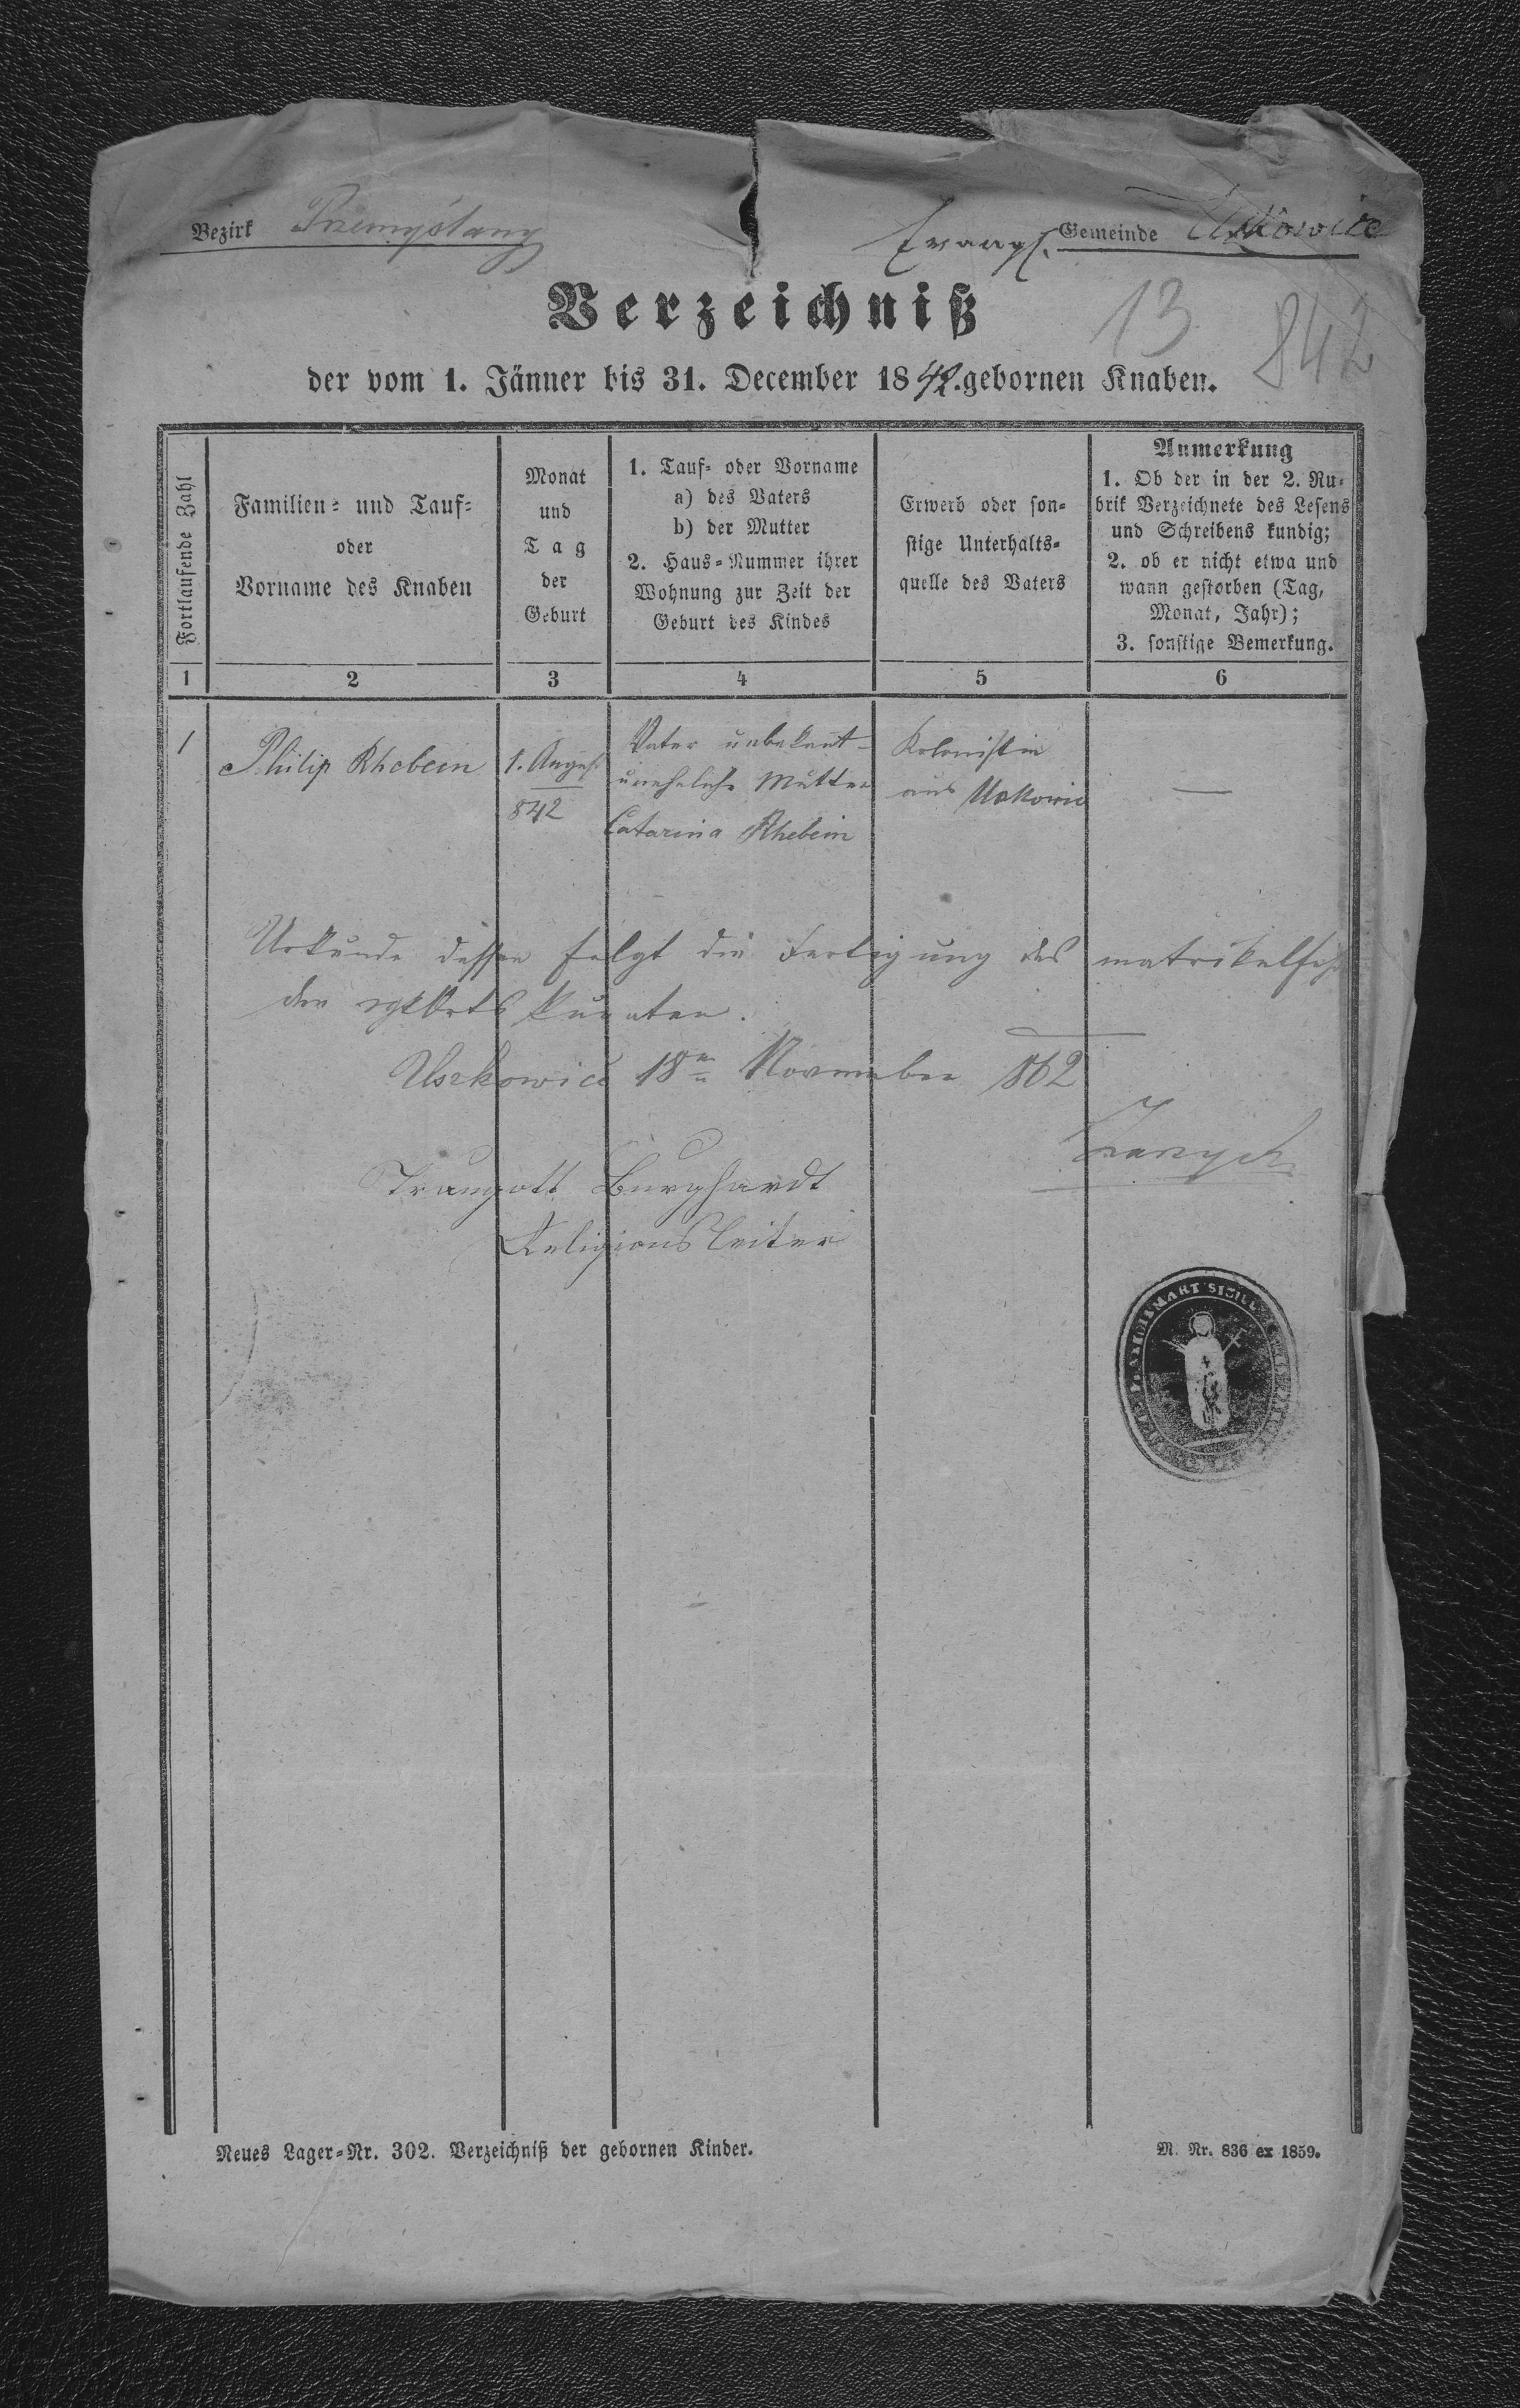 Bezirk Przemyślany
Evangl. Gemeinde Uszkowice
Verzeichniß
13
842
der vom 1. Jänner bis 31. December 1842. gebornen Knaben.
Fortlaufende Zahl
Familien= und Tauf=
oder
Vorname des Knaben
Monat
und
Tag
der
Geburt
1. Tauf= oder Vorname
a) des Vaters
b) der Mutter
2. Haus=Nummer ihrer
Wohnung zur Zeit der
Geburt des Kindes
Erwerb oder son=
stige Unterhalts=
quelle des Vaters
Anmerkung
1. Ob der in der 2. Ru=
brik Verzeichnete des Lesens
und Schreibens kundig;
2. ob er nicht etwa und
wann gestorben (Tag,
Monat, Jahr);
3. sonstige Bemerkung.
1 2 3 4 5 6
1
Philip Rhebein
1. August
842
Vater unbekant
uneheliche Mutter
Catarina Rhebein
Kolonistin
aus
—
Urkunde dessen folgt die Fertigung des
Uszkowice 18 November 862
Traugott Burghardt
Religionsleiter
Neues Lager=Nr. 302. Verzeichniß der gebornen Kinder.
M. Nr. 836 ex 1859.